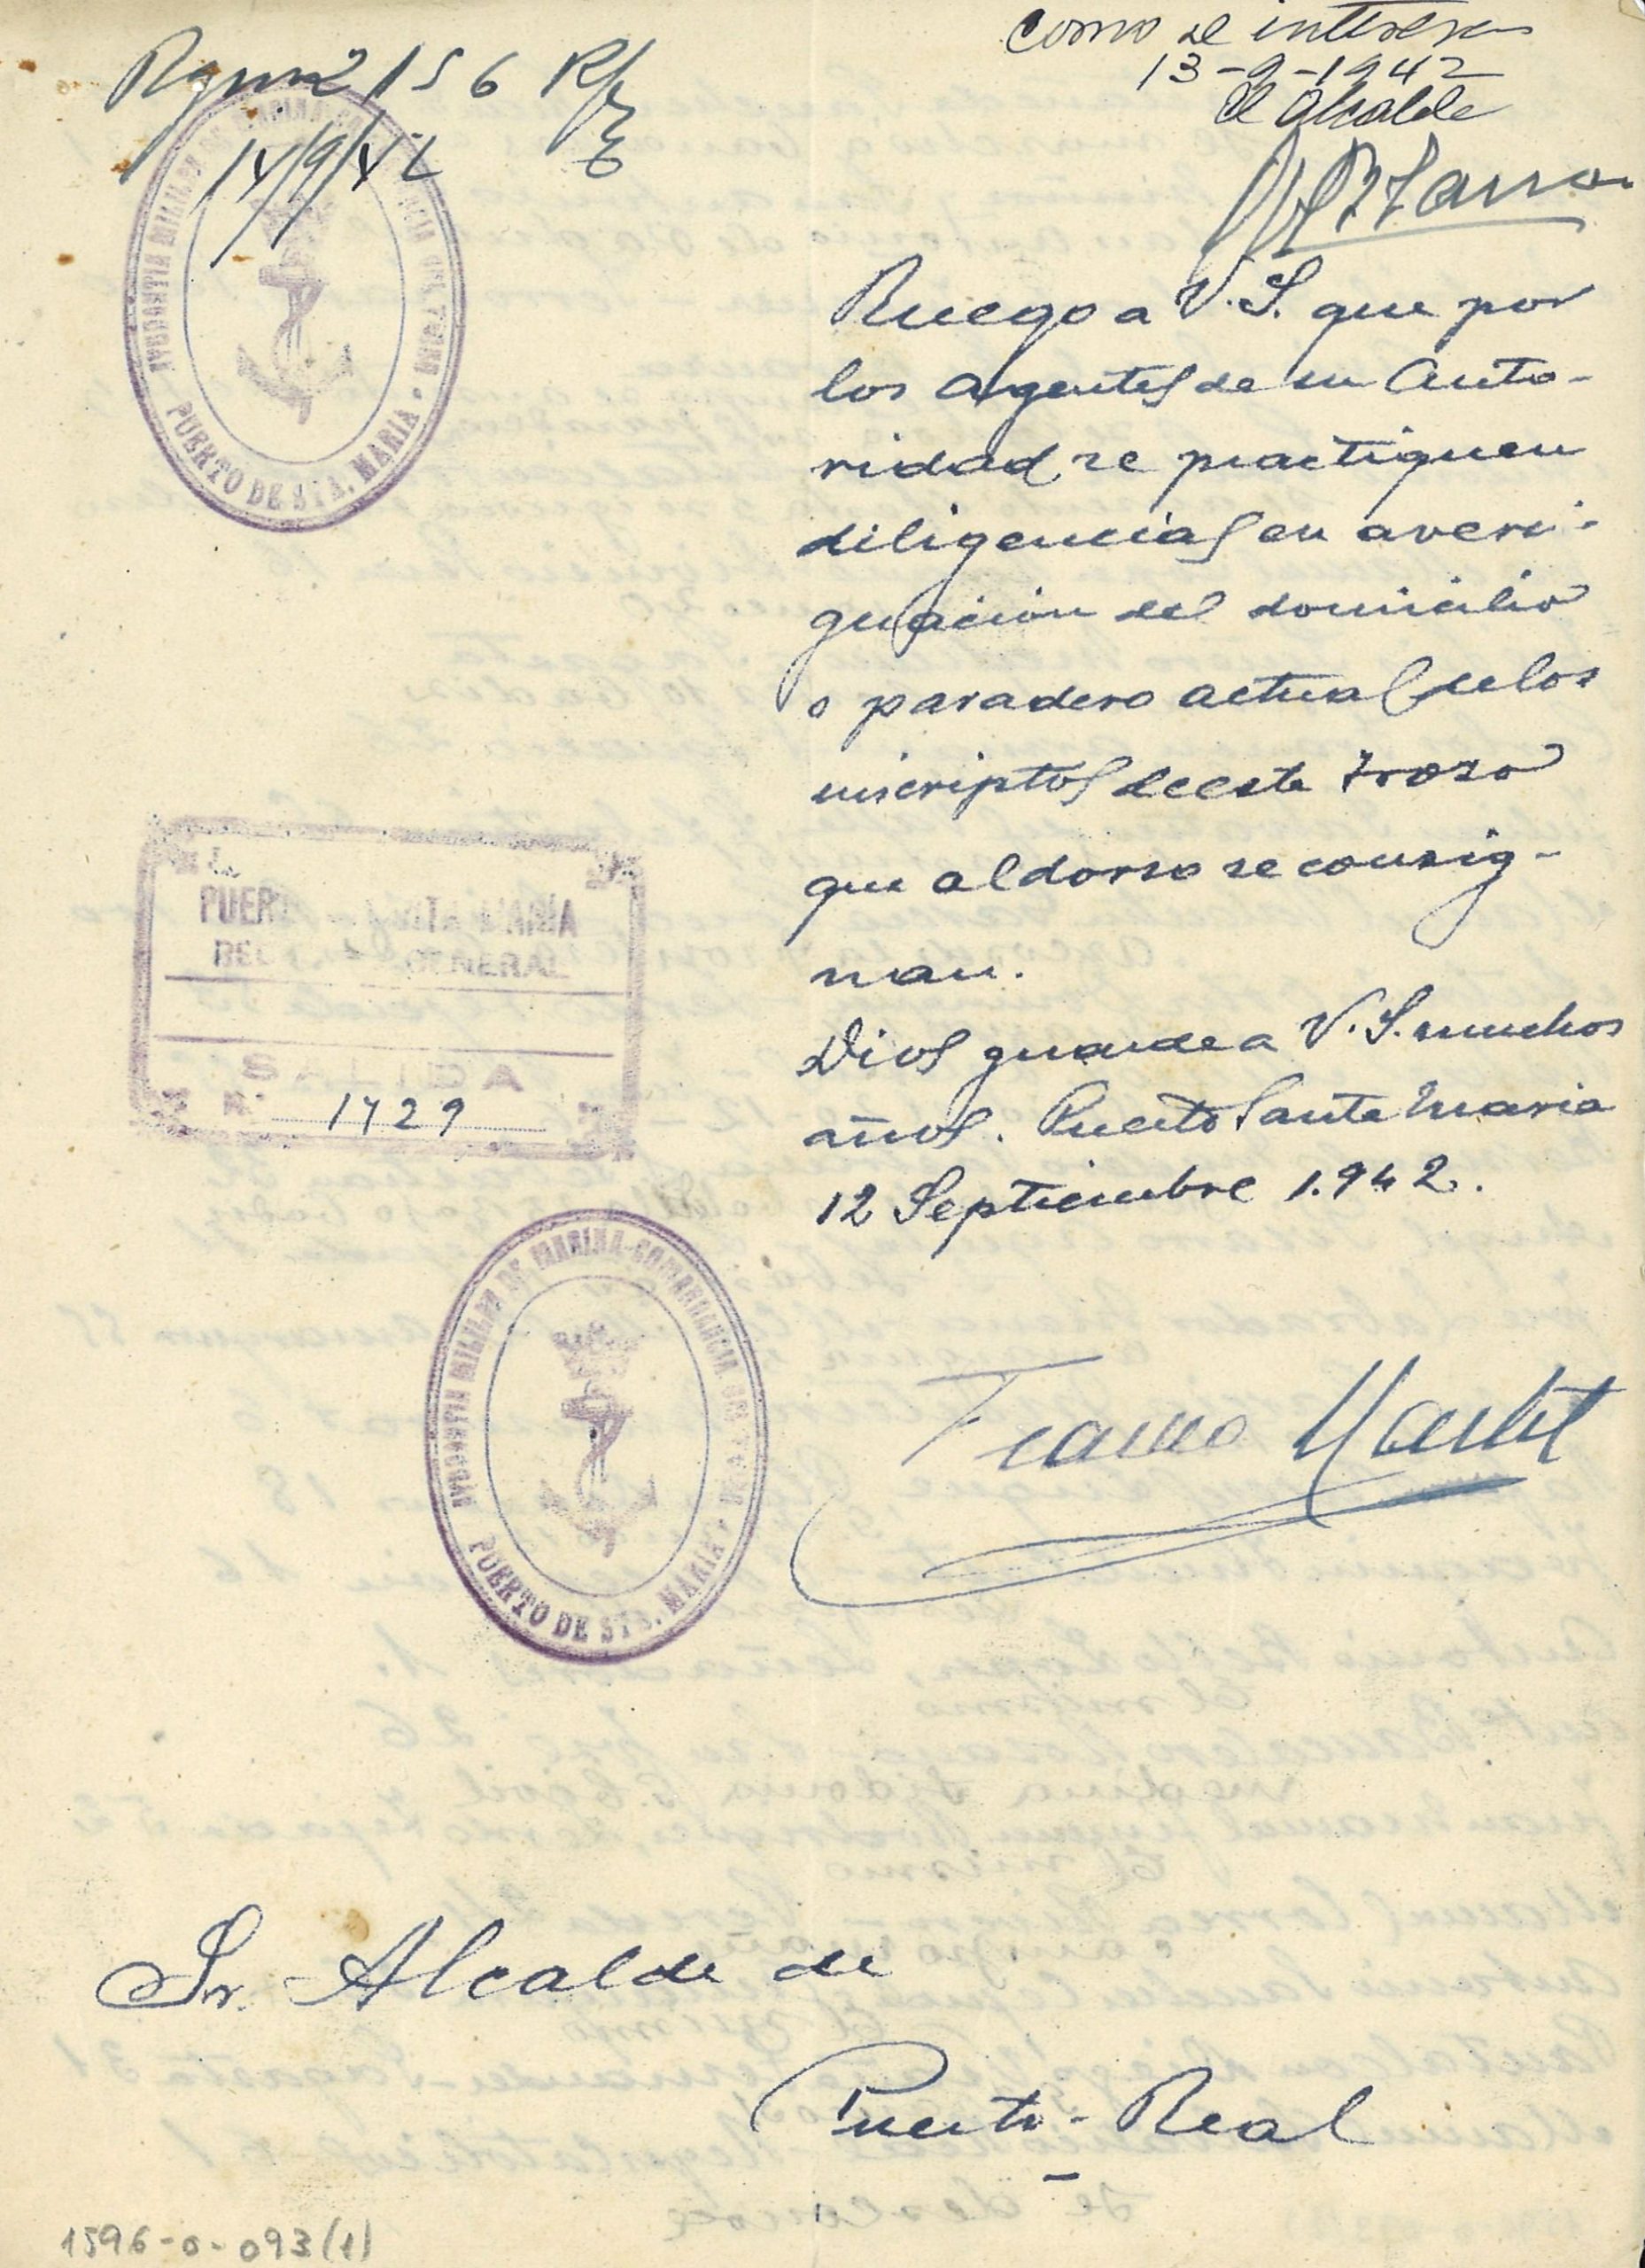 como se interesa
13-9-1942
El Alcalde
156
14/9/42
AYUDANTIA MILITAR DE MARINA-COMANDANCIA DEL TROZO
PUERTO DE STA. MARIA
Ruego a V.S. que por
los agentes de su Auto-
ridad, se practiquen
diligencias en averi-
guación del domicilio
o paradero actual de los
inscriptos de este trozo
que al dorso se consig-
nan.
Dios guarde a V.S. muchos
años. Puerto Santa Maria
12 Septiembre 1.942.
PUERTO SANTA MARIA
GENERAL
SALIDA
N.º 1429
AYUDANTIA MILITAR DE MARINA-COMANDANCIA DEL TROZO
PUERTO DE STA. MARIA
Sr. Alcalde de
Puerto-Real
1596-0-093(1)